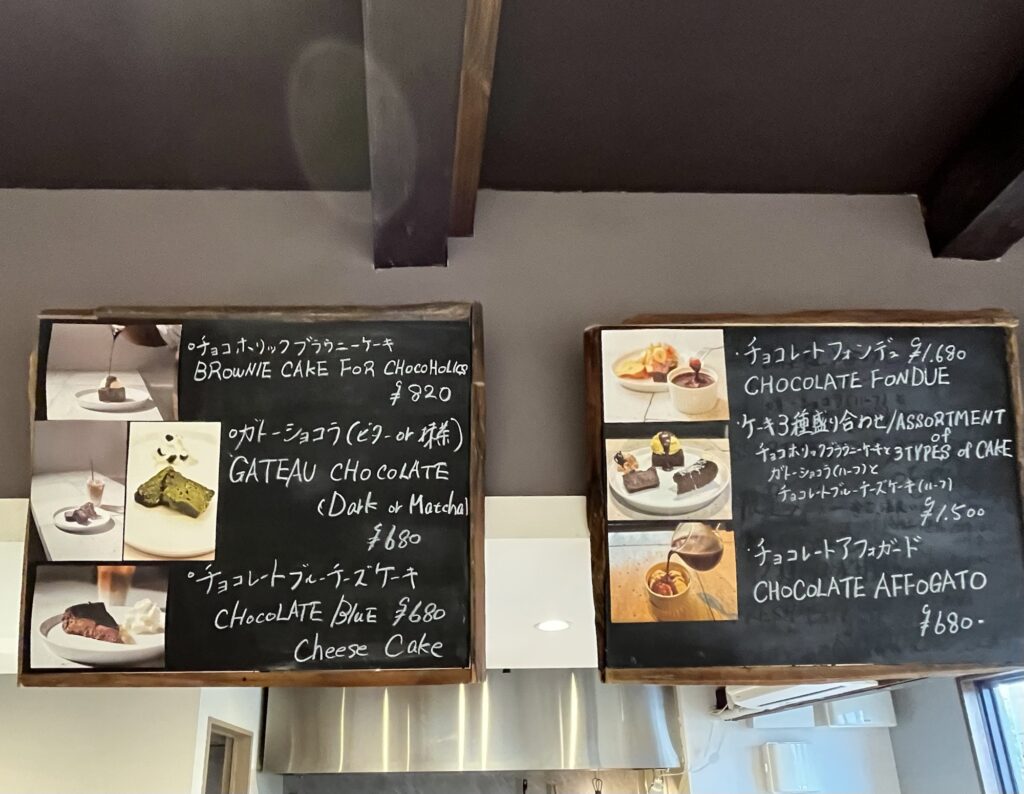 ○チョコホリックブラウニーケーキ
BROWNIE CAKE FOR CHOCOHOLICS
¥820
○ガトーショコラ(ビター or 抹茶)
GATEAU CHOCOLATE
(Dark or Matcha)
¥680
○チョコレートブルーチーズケーキ
CHOCOLATE/BLUE ¥680
Cheese Cake
・チョコレートフォンデュ ¥1.680
CHOCOLATE FONDUE
・ケーキ3種盛り合わせ/ASSORTMENT
of
チョコホリックブラウニーケーキと 3TYPES of CAKE
ガトーショコラ(ハーフ)と
チョコレートブルーチーズケーキ(ハーフ)
¥1.500
・チョコレートアフォガード
CHOCOLATE AFFOGATO
¥680-